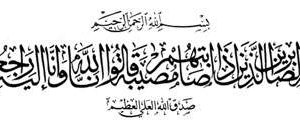 بسم الله الرحمن الرحيم
الصابرين الذين اذا اصابتهم مصيبة قالوا انا لله وانا اليه
صدق الله العلي العظيم